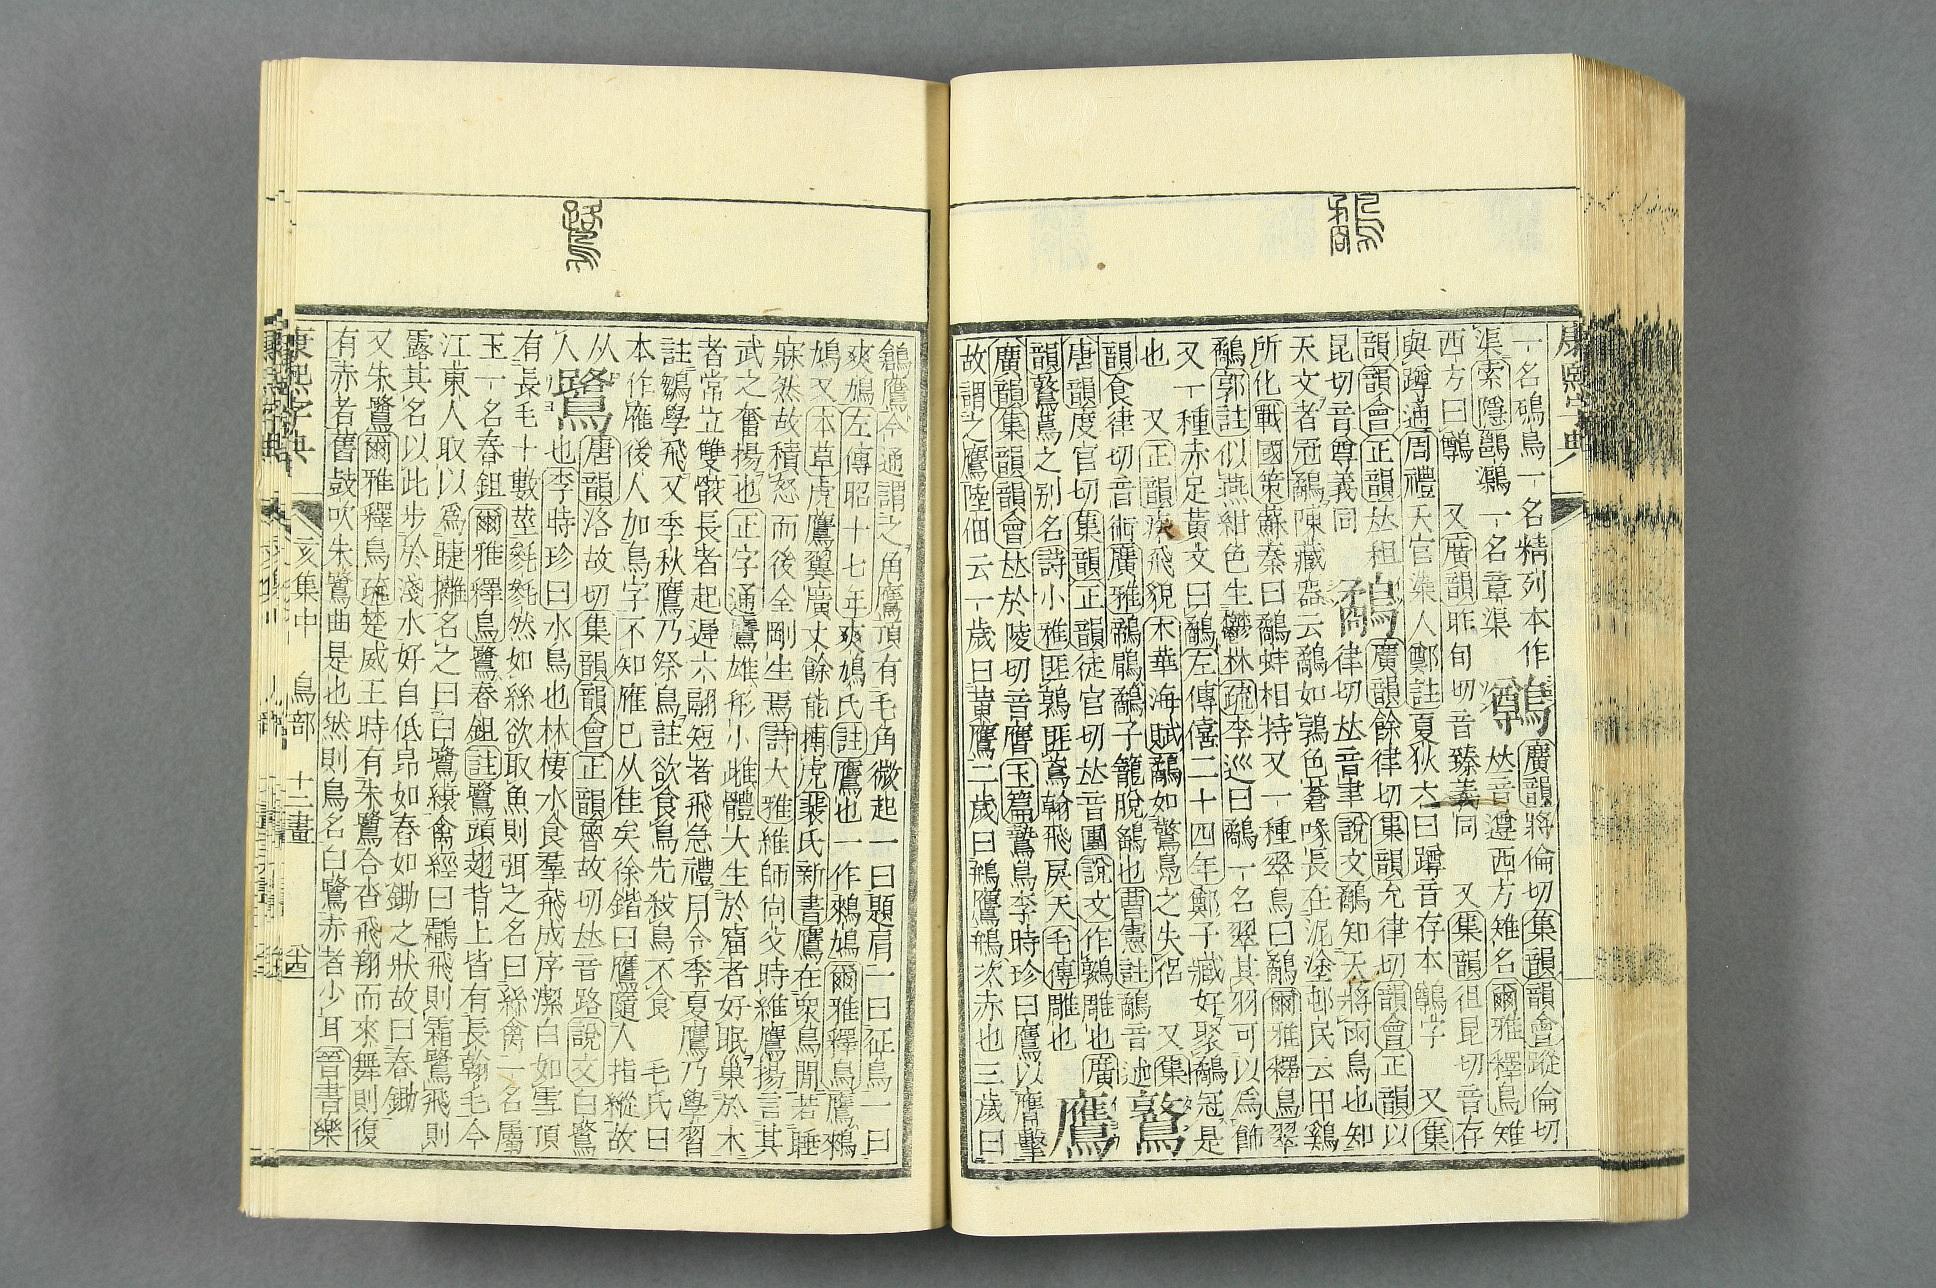 康熙字典
一名鴋鳥一名精列本作
渠索隱鶅鸈一名章渠
鷷
廣韻將倫切集韻韻會蹤倫切
𠀤音遵西方雉名爾雅釋鳥雉
西方曰鷷 又廣韻昨旬切音臻義同 又集韻徂昆切音存
與蹲通周禮天官染人鄭註夏狄六曰蹲音存本鷷字 又集
韻韻會正韻𠀤租
昆切音尊義同
鷸
廣韻餘律切集韻允律切韻會正韻以
律切𠀤音聿說文鷸知天將雨鳥也知
天文者冠鷸陳藏器云鷸如鶉色蒼喙長在泥塗邨民云田鷄
所化戰國策蘇秦曰鷸蚌相持又一種翠鳥曰鷸爾雅釋鳥翠
鷸郭註似燕紺色生鬱林疏李巡曰鷸一名翠其羽可以爲飾
又一種赤足黃文曰鷸左傳僖二十四年鄭子臧好聚鷸冠是
也 又正韻疾飛貌木華海賦鷸如驚鳧之失侶 又集
韻食律切音術廣雅鷸鶞鷸子籠脫鷂也曹憲註鷸音述
鷻
唐韻度官切集韻正韻徒官切𠀤音團說文作鷻雕也廣
韻鷻鳶之别名詩小雅匪鶉匪鳶翰飛戾天毛傳雕也
鷹
廣韻集韻韻會𠀤於陵切音膺玉篇鷙鳥李時珍曰鷹以膺擊
故謂之鷹陸佃云一歲曰黃鷹二歲曰鴘鷹鴘次赤也三歲曰
鶬鷹今通謂之角鷹頂有毛角微起一曰題肩一曰征鳥一曰
爽鳩左傳昭十七年爽鳩氏註鷹也一作鶆鳩爾雅釋鳥鷹鶆
鳩又本草虎鷹翼廣丈餘能搏虎裴氏新書鷹在衆鳥閒若睡
寐然故積怒而後全剛生焉詩大雅維師尙父時維鷹揚言其
武之奮揚也正字通鷹雄形小雌體大生於窟者好眠巢於木
者常立雙骹長者起遲六翮短者飛急禮月令季夏鷹乃學習
註鶵學飛又季秋鷹乃祭鳥註欲食鳥先殺鳥不食 毛氏曰
本作雁後人加鳥字不知雁巳从隹矣徐鍇曰鷹隨人指縱故
从人
鷺
唐韻洛故切集韻韻會正韻魯故切𠀤音路說文白鷺
也李時珍曰水鳥也林棲水食羣飛成序潔白如雪頂
有長毛十數莖毿毿然如絲欲取魚則弭之名曰絲禽一名屬
玉一名舂鉏爾雅釋鳥鷺舂鉏註鷺頭翅背上皆有長翰毛今
江東人取以爲睫攡名之曰白鷺縗禽經曰鸘飛則霜鷺飛則
露其名以此步於淺水好自低昻如舂如鋤之狀故曰舂鋤
又朱鷺爾雅釋鳥疏楚威王時有朱鷺合沓飛翔而來舞則復
有赤者舊鼓吹朱鷺曲是也然則鳥名白鷺赤者少耳晉書樂
康熙字典 亥集中 鳥部 十二畫